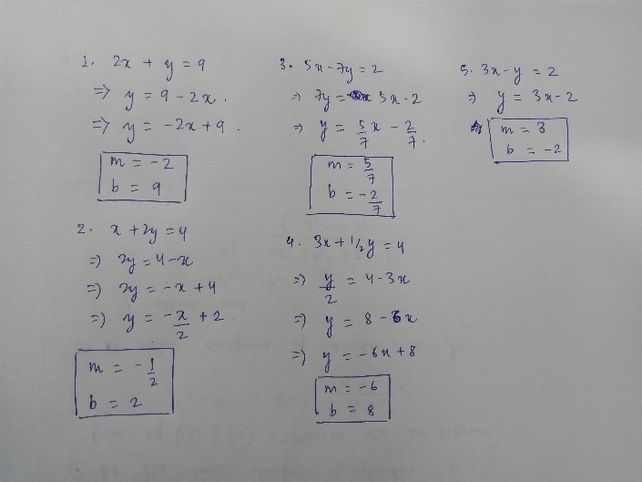 1. 2x + y = 9
=> y = 9 - 2x.
=> y = -2x + 9.
m = -2
b = 9
2. x + 2y = 4
=> 2y = 4 - x
=> 2y = -x + 4
=> y = -x/2 + 2
m = -1/2
b = 2
3. 5x - 7y = 2
=> 7y = 5x - 2
=> y = 5/7 x - 2/7.
m = 5/7
b = -2/7
4. 3x + 1/2 y = 4
=> y/2 = 4 - 3x
=> y = 8 - 6x
=> y = -6x + 8
m = -6
b = 8
5. 3x - y = 2
=> y = 3x - 2
m = 3
b = -2